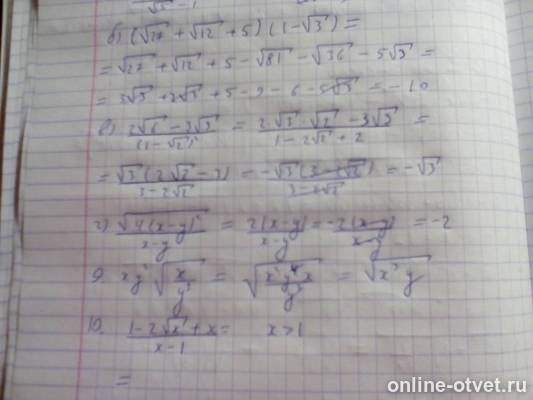 б) (√27 + √12 + 5) (1 - √3) =
= √27 + √12 + 5 - √81 - √36 - 5√3 =
= 3√3 + 2√3 + 5 - 9 - 6 - 5√3 = -10
в) (2√6 - 3√3) / (1 - √2)² = (2·√3·√2 - 3√3) / (1 - 2√2 + 2) =
= √3 (2√2 - 3) / (3 - 2√2) = -√3 (3 - 2√2) / (3 - 2√2) = -√3
г) √4(x-y)² / (x-y) = 2|x-y| / (x-y) = -2(x-y) / (x-y) = -2
9. xy² √(x / y³) = √(x²y⁴x / y³) = √x³y
10. (1 - 2√x + x) / (x - 1) = x > 1
=
online-otvet.ru